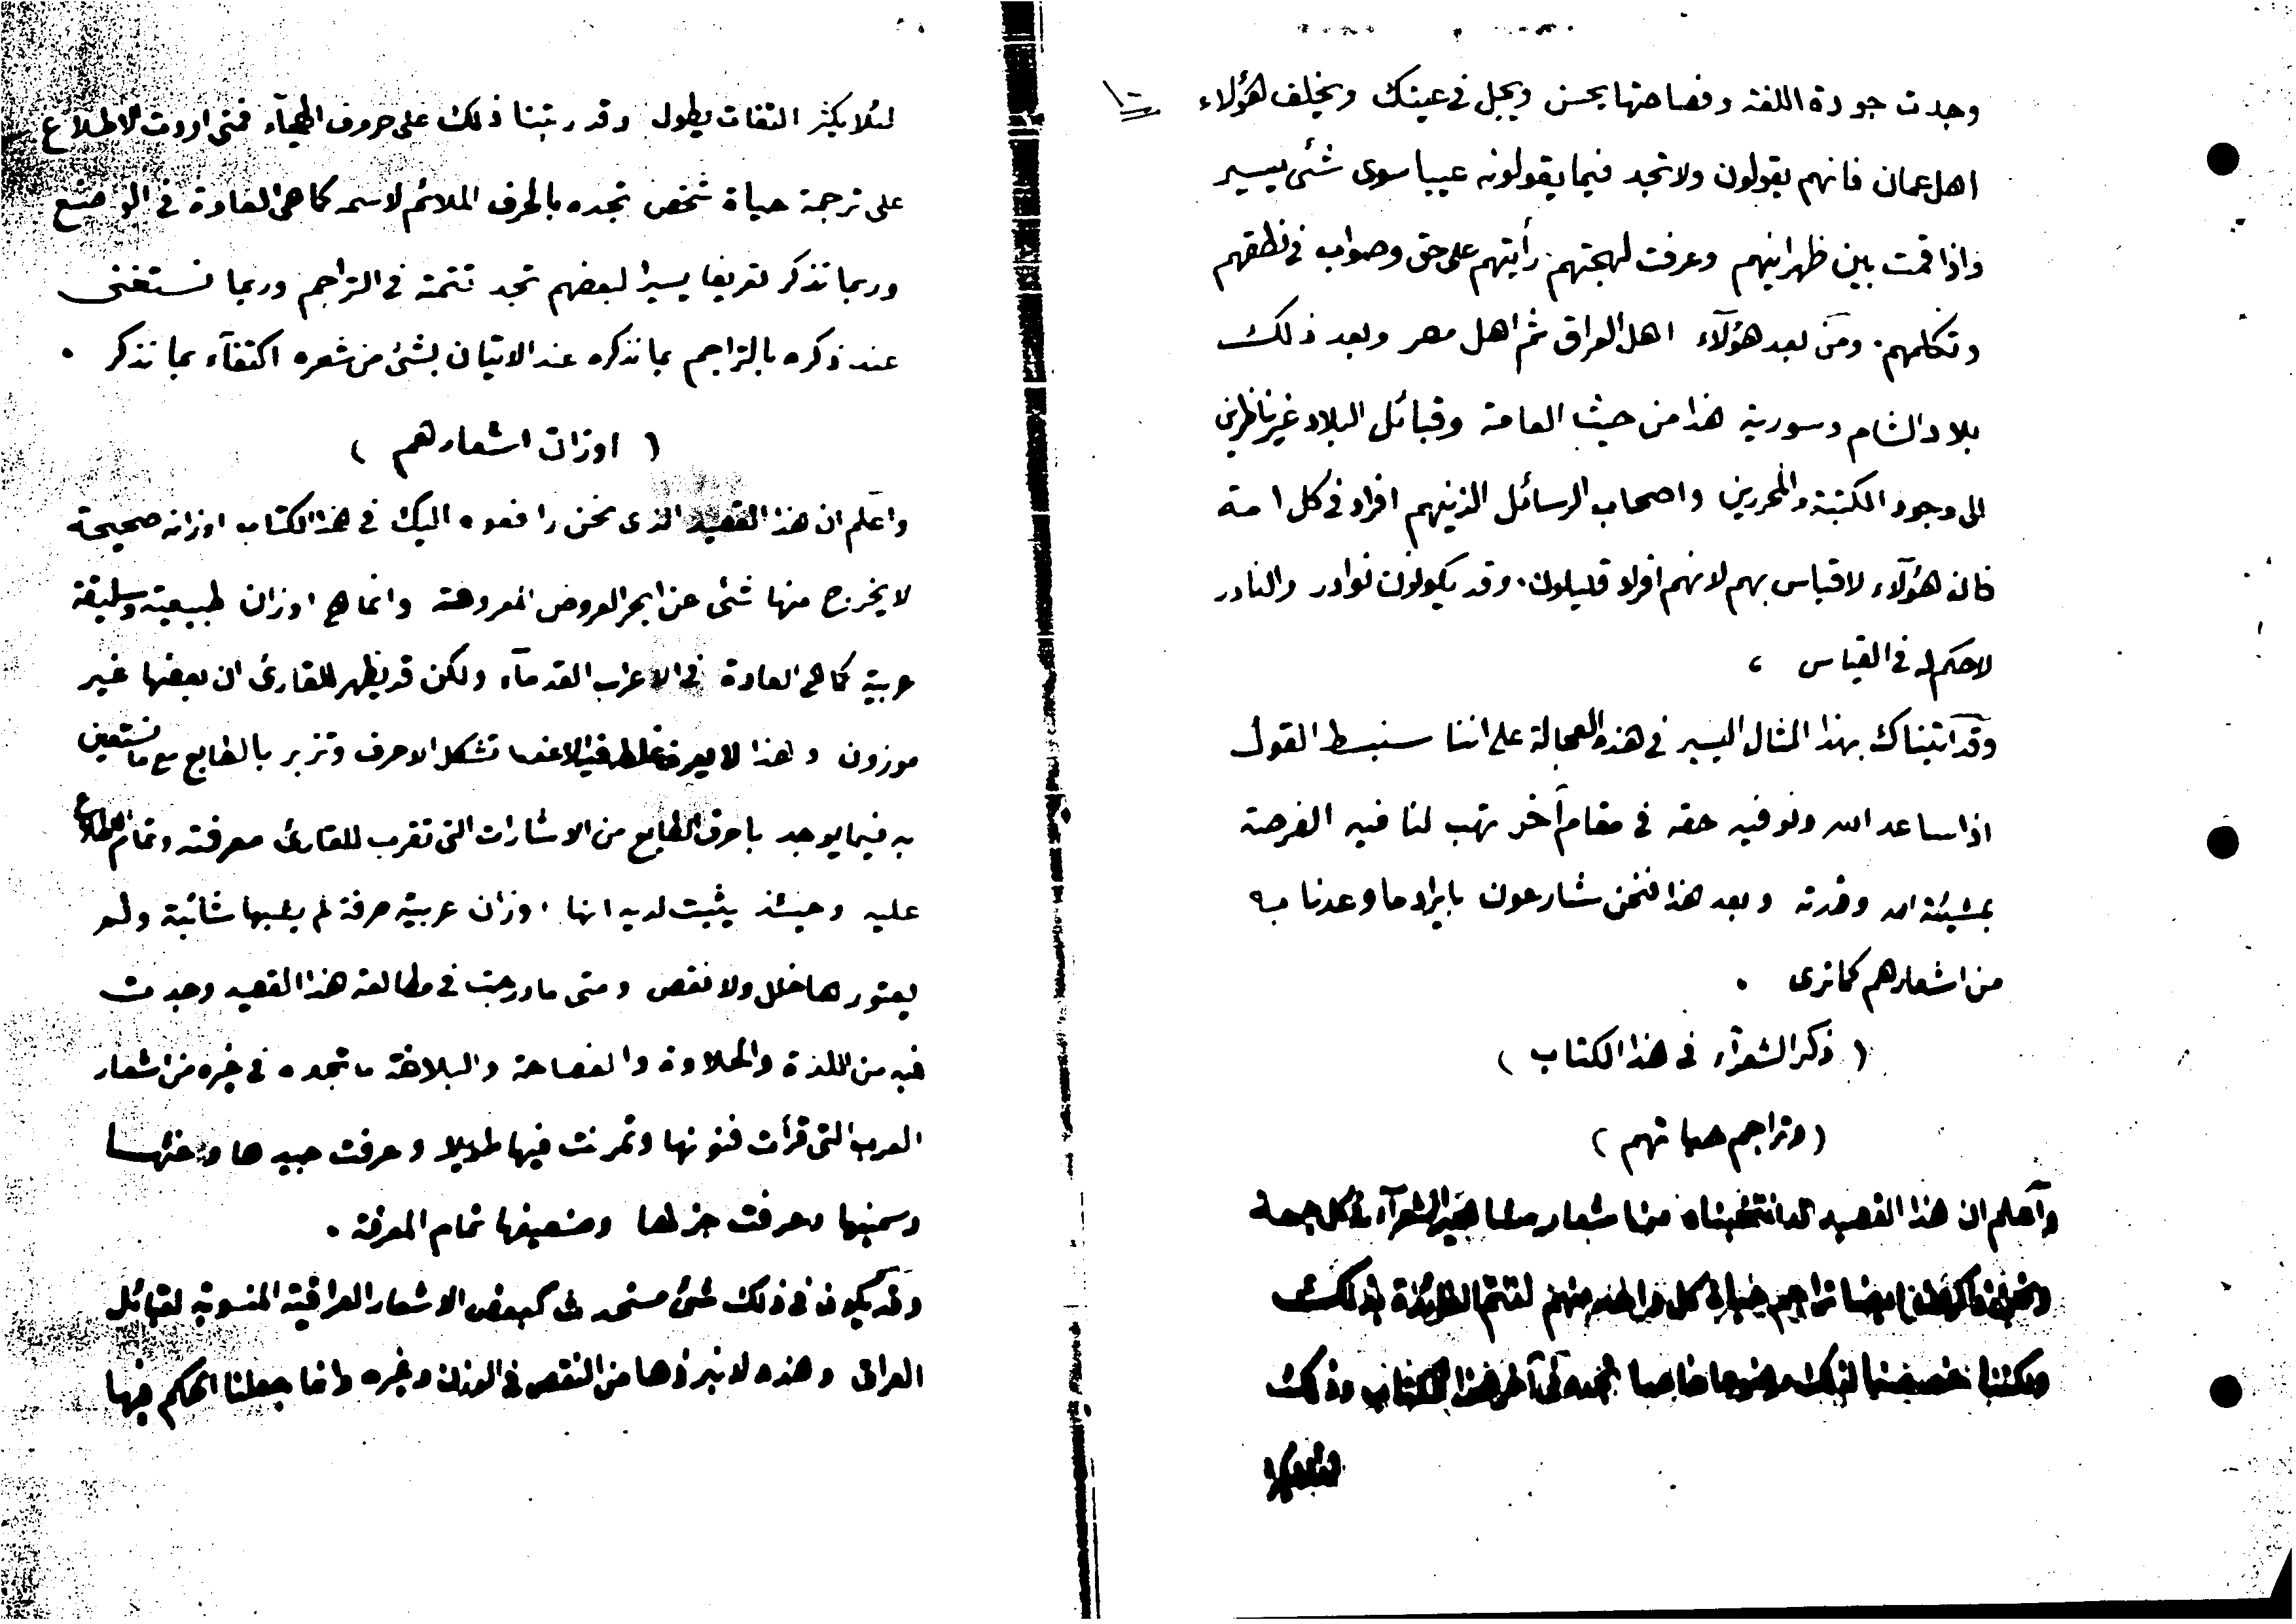 وجدت جودة اللغة وفصاحتها يحسن ويجل في عينك ويخلف هؤلاء
اهل عمان فانهم يقولون ولا تجد فيما يقولونه عيبا سوى شئ يسير
واذا قمت بين ظهرانيهم وعرفت لهجتهم رأيتهم على حق وصواب في نطقهم
وتكلمهم. ومن بعد هؤلآء اهل العراق ثم اهل مصر وبعد ذلك
بلاد الشام وسورية هذا من حيث العامة وقبائل البلاد غير ناظرين
الى وجود الكتبة والمحررين واصحاب الرسائل الذينهم افراد في كل امة
فان هؤلآء لا قياس بهم لانهم افراد قليلون. وقد يكونون نوادر والنادر
لا حكم له في القياس ،
وقد آتيناك بهذا المثال اليسير في هذه العجالة على اننا سنبسط القول
اذا ساعد الله ونوفيه حقه في مقام آخر تهب لنا فيه الفرصة
بمشيئة الله وقدرته وبعد هذا فنحن شارعون بايراد ما وعدنا به
من اشعارهم كما ترى .
( ذكر الشعرآء في هذا الكتاب )
( وتراجم حياتهم )
وآعلم ان هذا القصيد قد انتخبناه من اشعار مشاهير الشعرآء في كل جهة
ايضا تراجم حياة كل واحد منهم لتتم الفائدة بذلك
ولكننا خصصنا لذلك موضوعا خاصا تجده في آخر هذا الكتاب وذلك
لئلا يكثر التفات يطول وقد رتبنا ذلك على حروف الهجآء فمتى اردت الاطلاع
على ترجمة حياة شخص تجده بالحرف الملائم لاسمه كما هي العادة في الوضع
وربما نذكر تعريفا يسيرا لبعضهم تجد تتمته في التراجم وربما نستغنى
عند ذكره بالتراجم بما نذكره عند الاتيان بشئ من شعره اكتفآء بما نذكر .
( اوزان اشعارهم )
واعلم ان هذا القصيد الذى نحن رافعوه اليك في هذا الكتاب اوزانه صحيحة
لا يخرج منها شئ عن ابحر العروض المعروفة وانما هي اوزان طبيعية وسليقة
عربية كما هي العادة في الاعراب القدمآء ولكن قد يظهر للقارئ ان بعضها غير
موزون وهذا تشكل الاحرف وتزبر بالطابع مع ما نستعين
به فيما يوجد باحرف الطابع من الاشارات التى تقرب للقارئ معرفته وتمام الاطلاع
عليه وحينئذ يثبت لديه انها اوزان عربية صرفة لم يشبها شائبة ولم
يعتورها خلل ولا نقص ومتى ما درجت في مطالعة هذا القصيد وجدت
فيه من اللذة والحلاوة والفصاحة والبلاغة ما تجده في غيره من اشعار
العرب التى قرأت فنونها وتمرنت فيها طويلا وعرفت جيدها وغثها
وسمينها وعرفت جزلها وضعيفها تمام المعرفة .
وقد يكون في ذلك شئ مستحدث كبعض الاشعار العراقية المنسوبة لقبائل
العراق وهذه لا نبرؤها من النقص في الوزن وغيره وانما جعلنا الحكم فيها